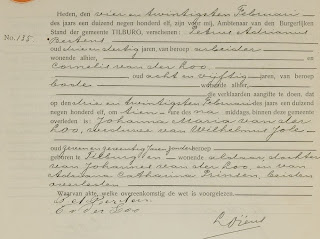 Heden, den vier en twintigsten Februari
des jaars een duizend negen honderd elf, zijn voor mij, Ambtenaar van den Burgerlijken
No. 135. Stand der gemeente TILBURG, verschenen: Petrus Adrianus
Bertens
oud drie en dertig jaren, van beroep arbeider
wonende alhier, en
Cornelis van der Loo
oud acht en vijftig jaren, van beroep
bode wonende alhier,
die verklaarden aangifte te doen, dat
op den drie en twintigsten Februari des jaars een duizend negen
honderd elf, om tien ure na middags, binnen deze gemeente
overleden is: Johanna Maria van der
Loo, weduwe van Wilhelmus
oud zeven en zeventig jaren, zonder beroep
geboren te Tilburg en wonende aldaar, dochter
van Johannes van der Loo en van
Adriana Catharina Prinsen, beiden
overleden
Waarvan akte, welke overeenkomstig de wet is voorgelezen.
P A Bertens
C v der Loo